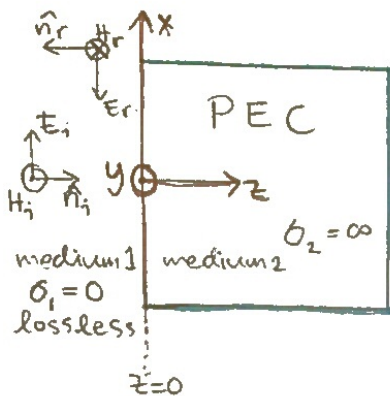 n̂r Hr x
Er
PEC
Ei
Hi n̂i y z
σ2 = ∞
medium1 medium2
σ1 = 0
lossless
z=0